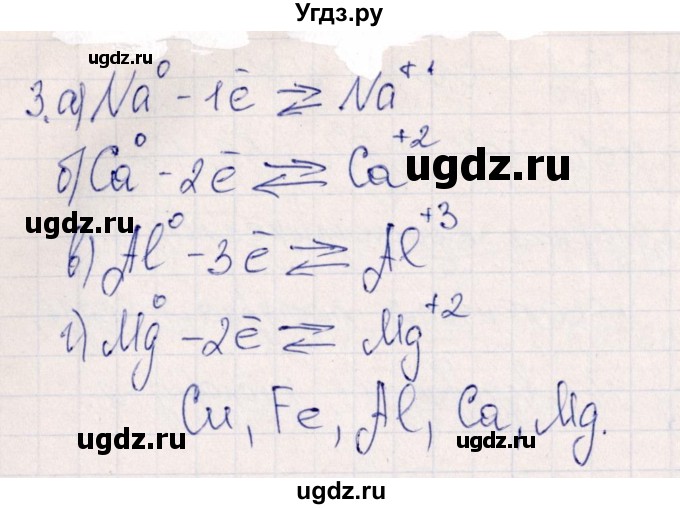 Угдз.ру
ugdz.ru
3. а) Na⁰ - 1ē ⇄ Na⁺¹
б) Ca⁰ - 2ē ⇄ Ca⁺²
ugdz.ru
ugdz.ru
в) Al⁰ - 3ē ⇄ Al⁺³
г) Mg⁰ - 2ē ⇄ Mg⁺²
Cu, Fe, Al, Ca, Mg.
ugdz.ru
ugdz.ru
ugdz.ru